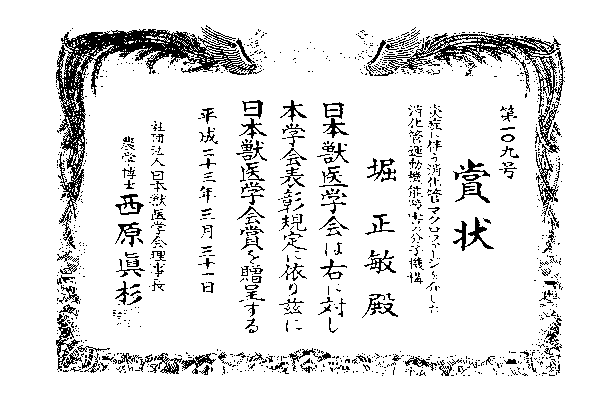 第一〇九号
賞状
炎症に伴う消化管マクロファージを介した
消化管運動機能障害の分子機構
堀 正敏 殿
日本獣医学会は右に対し
本学会表彰規定に依り茲に
日本獣医学会賞を贈呈する
平成二十三年三月三十一日
社団法人日本獣医学会理事長
農学博士 西原眞杉